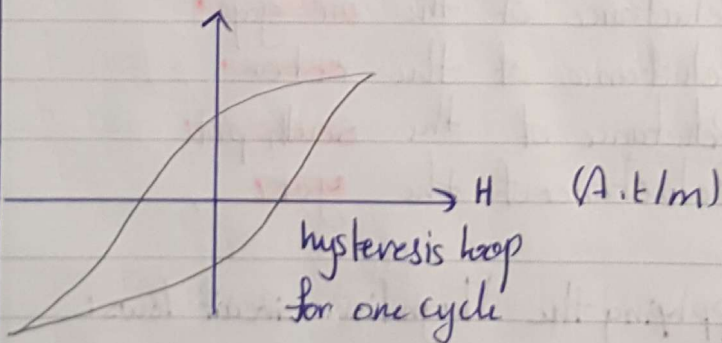 H (A.t/m)
hysteresis loop
for one cycle